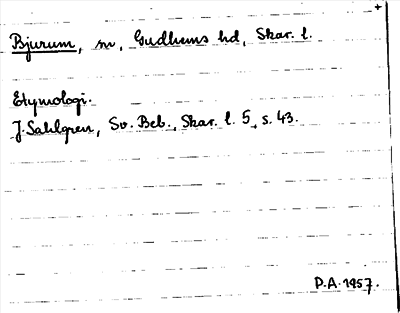 +
Bjurum, sn, Gudhems hd, Skar. l.
Etymologi.
J. Sahlgren, Sv. Beb., Skar. l. 5, s. 43.
P.A. 1957.